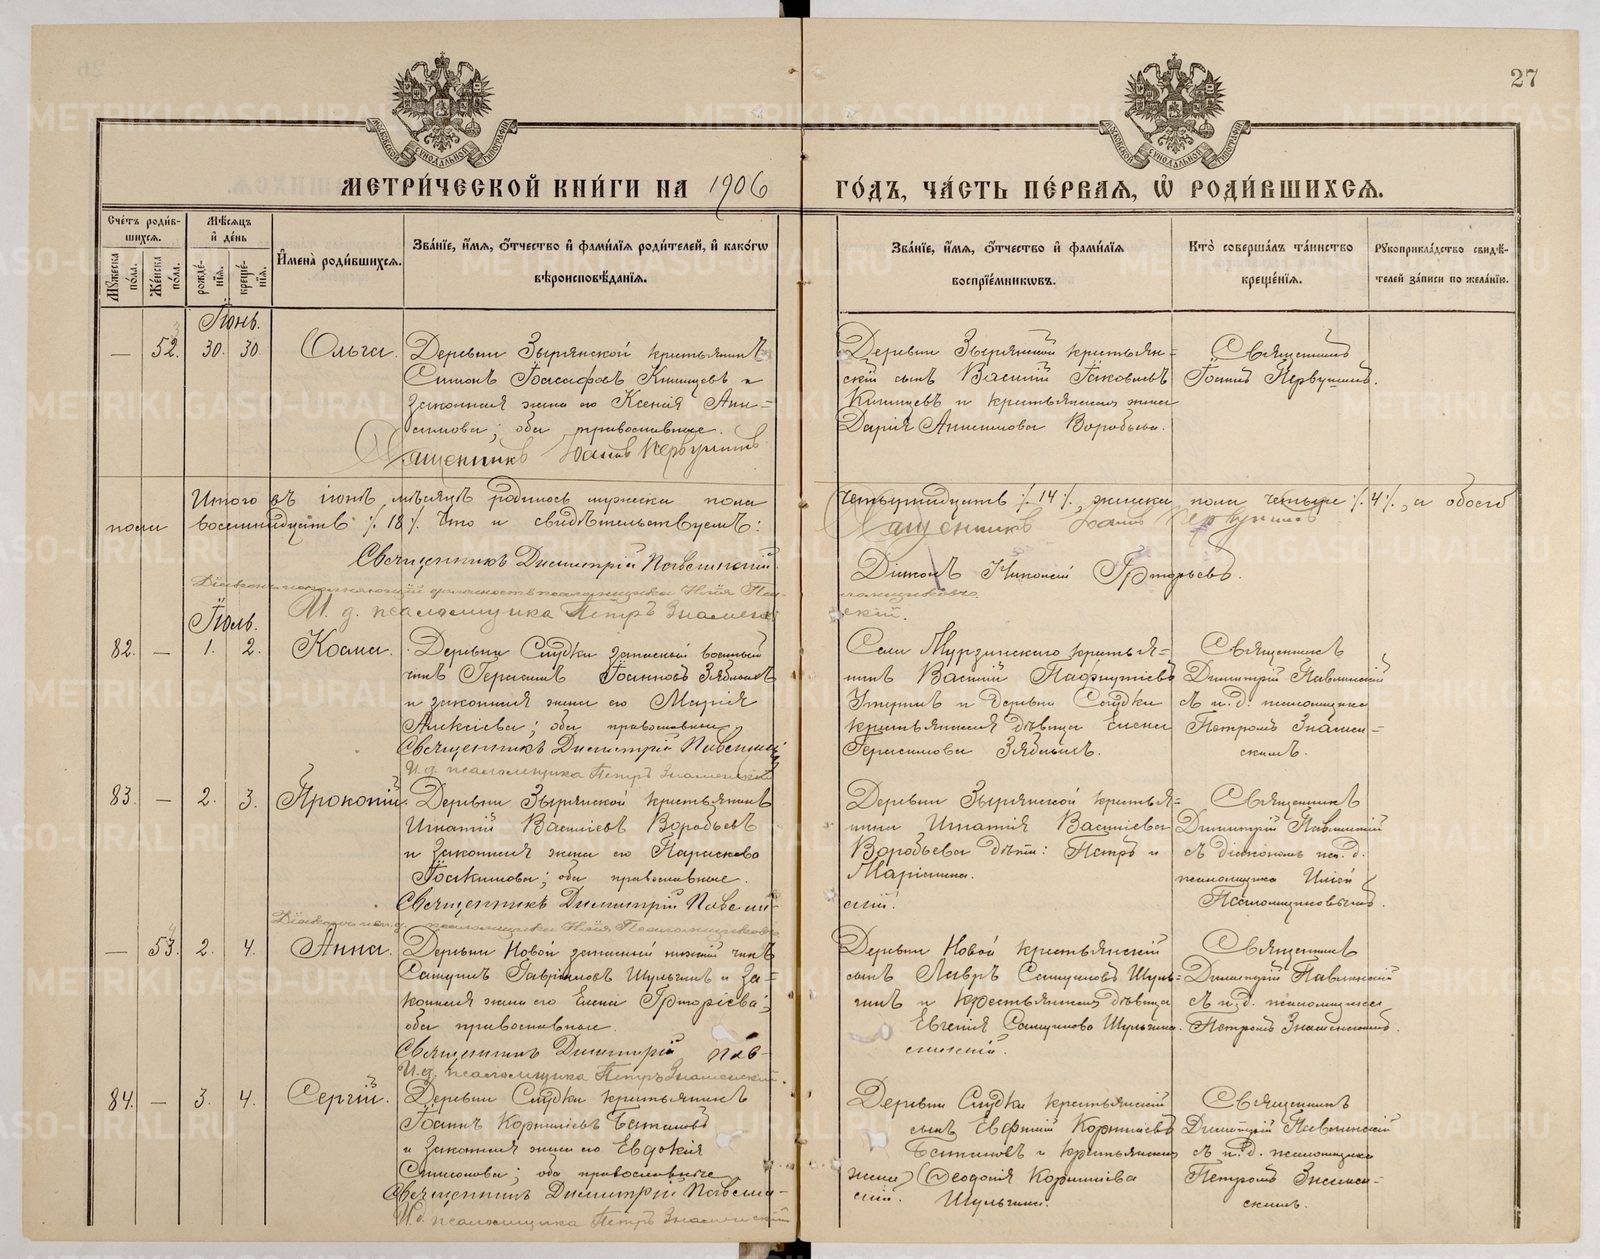 27
МЕТРИ́ЧЕСКОЙ КНИ́ГИ НА 1906
ГО́ДЪ, ЧА́СТЬ ПЕ́РВАЯ, Ѡ РОДИ́ВШИХСЯ.
Сче́тъ роди́в-
шихся.
Мꙋжеска по́ла.
Же́нска по́ла.
Мѣ́сяцъ
и де́нь
рожде́-
нїя.
креще́-
нїя.
Имена̀ роди́вшихся.
Зва́нїе, и́мя, о́тчество и фами́лїя роди́телей, и како́гѡ
вѣроисповѣ́данїя.
Зва́нїе, и́мя, о́тчество и фами́лїя
воспрїе́мниковъ.
Кто̀ соверша́лъ та́инство
креще́нїя.
Рꙋкоприкла́дство свидѣ́-
телей за́писи по жела́нїю.
Іюнь.
— 52. 30. 30. Ольга.
Деревни Зырянской крестьянинъ
Симонъ Іоасафовъ Кишцевъ и
законная жена его Ксенія Ани-
симова; оба православные.
Священникъ Іоаннъ Первушинъ
Деревни Зырянской крестьян-
скій сынъ Василій Іаковлевъ
Кишцевъ и крестьянская жена
Дарія Анисимова Воробьева.
Священникъ
Іоаннъ Первушинъ.
Итого въ іюнѣ мѣсяцѣ родилось мужеска пола
четырнадцать /14/, женска пола четыре /4/, а обоего
пола восемнадцать /18/. Что и свидѣтельствуемъ:
Священникъ Іоаннъ Первушинъ
Священникъ Димитрій Павлинскій
Діаконъ Григорьевъ.
И. д. псаломщика Петръ Знаменскій.
Іюль.
82. — 1. 2. Косма.
Деревни Слудки запасный
Герасимъ Іоанновъ Зяблицъ
и законная жена его Марія
Алексіева; оба православные
Священникъ Димитрій Павлинскій
И. д. псаломщика Петръ Знаменскій
Села Мурзинскаго крестья-
нинъ Василій Пафнутіевъ
и деревни Слудки
крестьянская дѣвица Елена
Герасимова
Священникъ
Димитрій Павлинскій
съ и. д. псаломщика
Петромъ Знамен-
скимъ.
83. — 2. 3. Прокопій.
Деревни Зырянской крестьянинъ
Игнатій Васіліевъ Воробьевъ
и законная жена его Параскева
Іоакимова; оба православные.
Священникъ Димитрій Павлин-
скій.
Деревни Зырянской крестья-
нина Игнатія Васіліева
Воробьева дѣти: Петръ и
Маріанна.
Священникъ
Димитрій Павлинскій
съ діакономъ на д.
псаломщика Иліей
Псаломщиковымъ.
— 53. 2. 4. Анна.
Деревни Новой запасный
Самуилъ Гавріиловъ Шульгинъ и за-
конная жена его Елена Григоріева;
оба православные.
Священникъ Димитрій Пав-
линскій.
И. д. псаломщика Петръ Знаменскій.
Деревни Новой крестьянскій
сынъ Лавръ Самуиловъ Шуль-
гинъ и крестьянская дѣвица
Евгенія Самуилова Шульгина.
Священникъ
Димитрій Павлинскій
съ и. д. псаломщика
Петромъ Знаменскимъ.
84. — 3. 4. Сергій.
Деревни Слудки крестьянинъ
Іоаннъ Корниліевъ Баталовъ
и законная жена его Евдокія
Симонова; оба православные
Священникъ Димитрій Павлин-
скій.
И. д. псаломщика Петръ Знаменскій
Деревни Слудки крестьянскій
сынъ Евфимій Корниліевъ
Баталовъ и крестьянская
жена Ѳеодосія Корниліева
Шульгина.
Священникъ
Димитрій Павлинскій
съ и. д. псаломщика
Петромъ Знамен-
скимъ.
METRIKI.GASO-URAL.RU